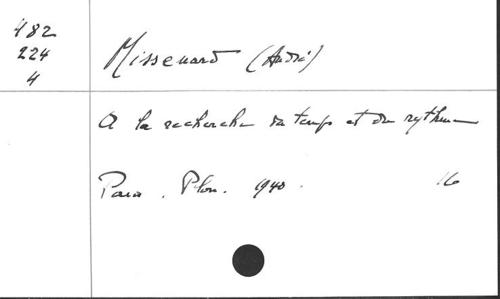 482
224
4
Missenard (André)
A la recherche du temps et du rythme
Paris. Plon. 1940. 16